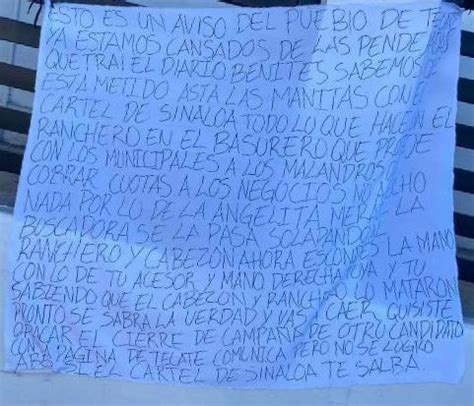 ESTO ES UN AVISO DEL PUEBLO DE
YA ESTAMOS CANSADOS DE LAS
QUE TRAI EL DIARIO BENITES SABEMOS
ESTA METIDO ASTA LAS MANITAS CON
CARTEL DE SINALOA TODO LO QUE HACEN EL
RANCHERO EN EL BASURERO QUE
CON LOS MUNICIPALES A LOS MALANDROS
COBRAR CUOTAS A LOS NEGOCIOS NO
NADA POR LO DE LA ANGELITA LA
BUSCADORA SE LA PASA SOLAPANDO
RANCHERO Y CABEZON AHORA ESCONDES LA MANO
CON LO DE TU ACESOR Y MANO DERECHA Y TU
SABIENDO QUE EL CABEZON Y RANCHERO LO MATARON
PRONTO SE SABRA LA VERDAD Y VAS CAER QUISISTE
OPACAR EL CIERRE DE CAMPAÑA DE OTRO CANDIDATO
PAGINA DE TECATE COMUNICA PERO NO SE LOGRO
SI EL CARTEL DE SINALOA TE SALBA